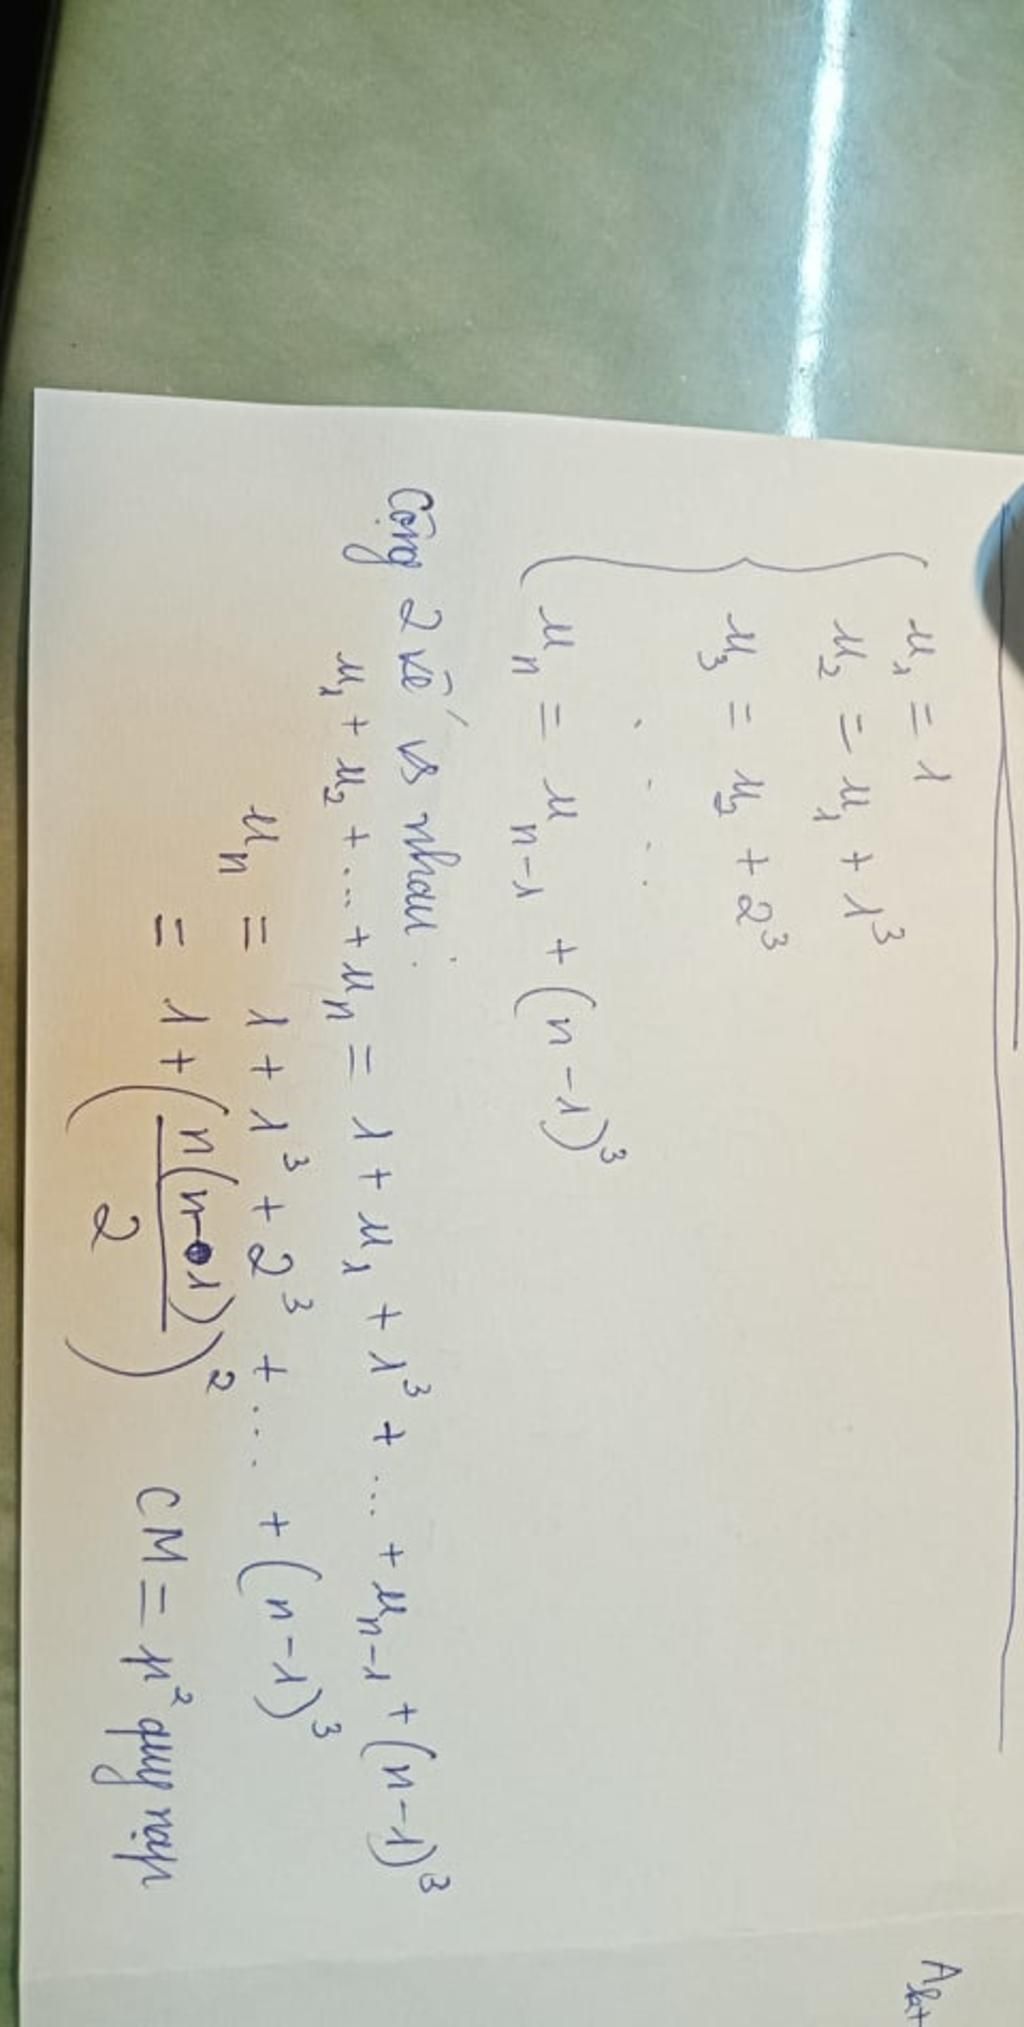 u₁ = 1
u₂ = u₁ + 1³
u₃ = u₂ + 2³
. . .
uₙ = uₙ₋₁ + (n-1)³
Cộng 2 vế vs nhau:
u₁ + u₂ + ... + uₙ = 1 + u₁ + 1³ + ... + uₙ₋₁ + (n-1)³
uₙ = 1 + 1³ + 2³ + .... + (n-1)³
= 1 + (n(n-1)/2)² CM = p² quy nạp